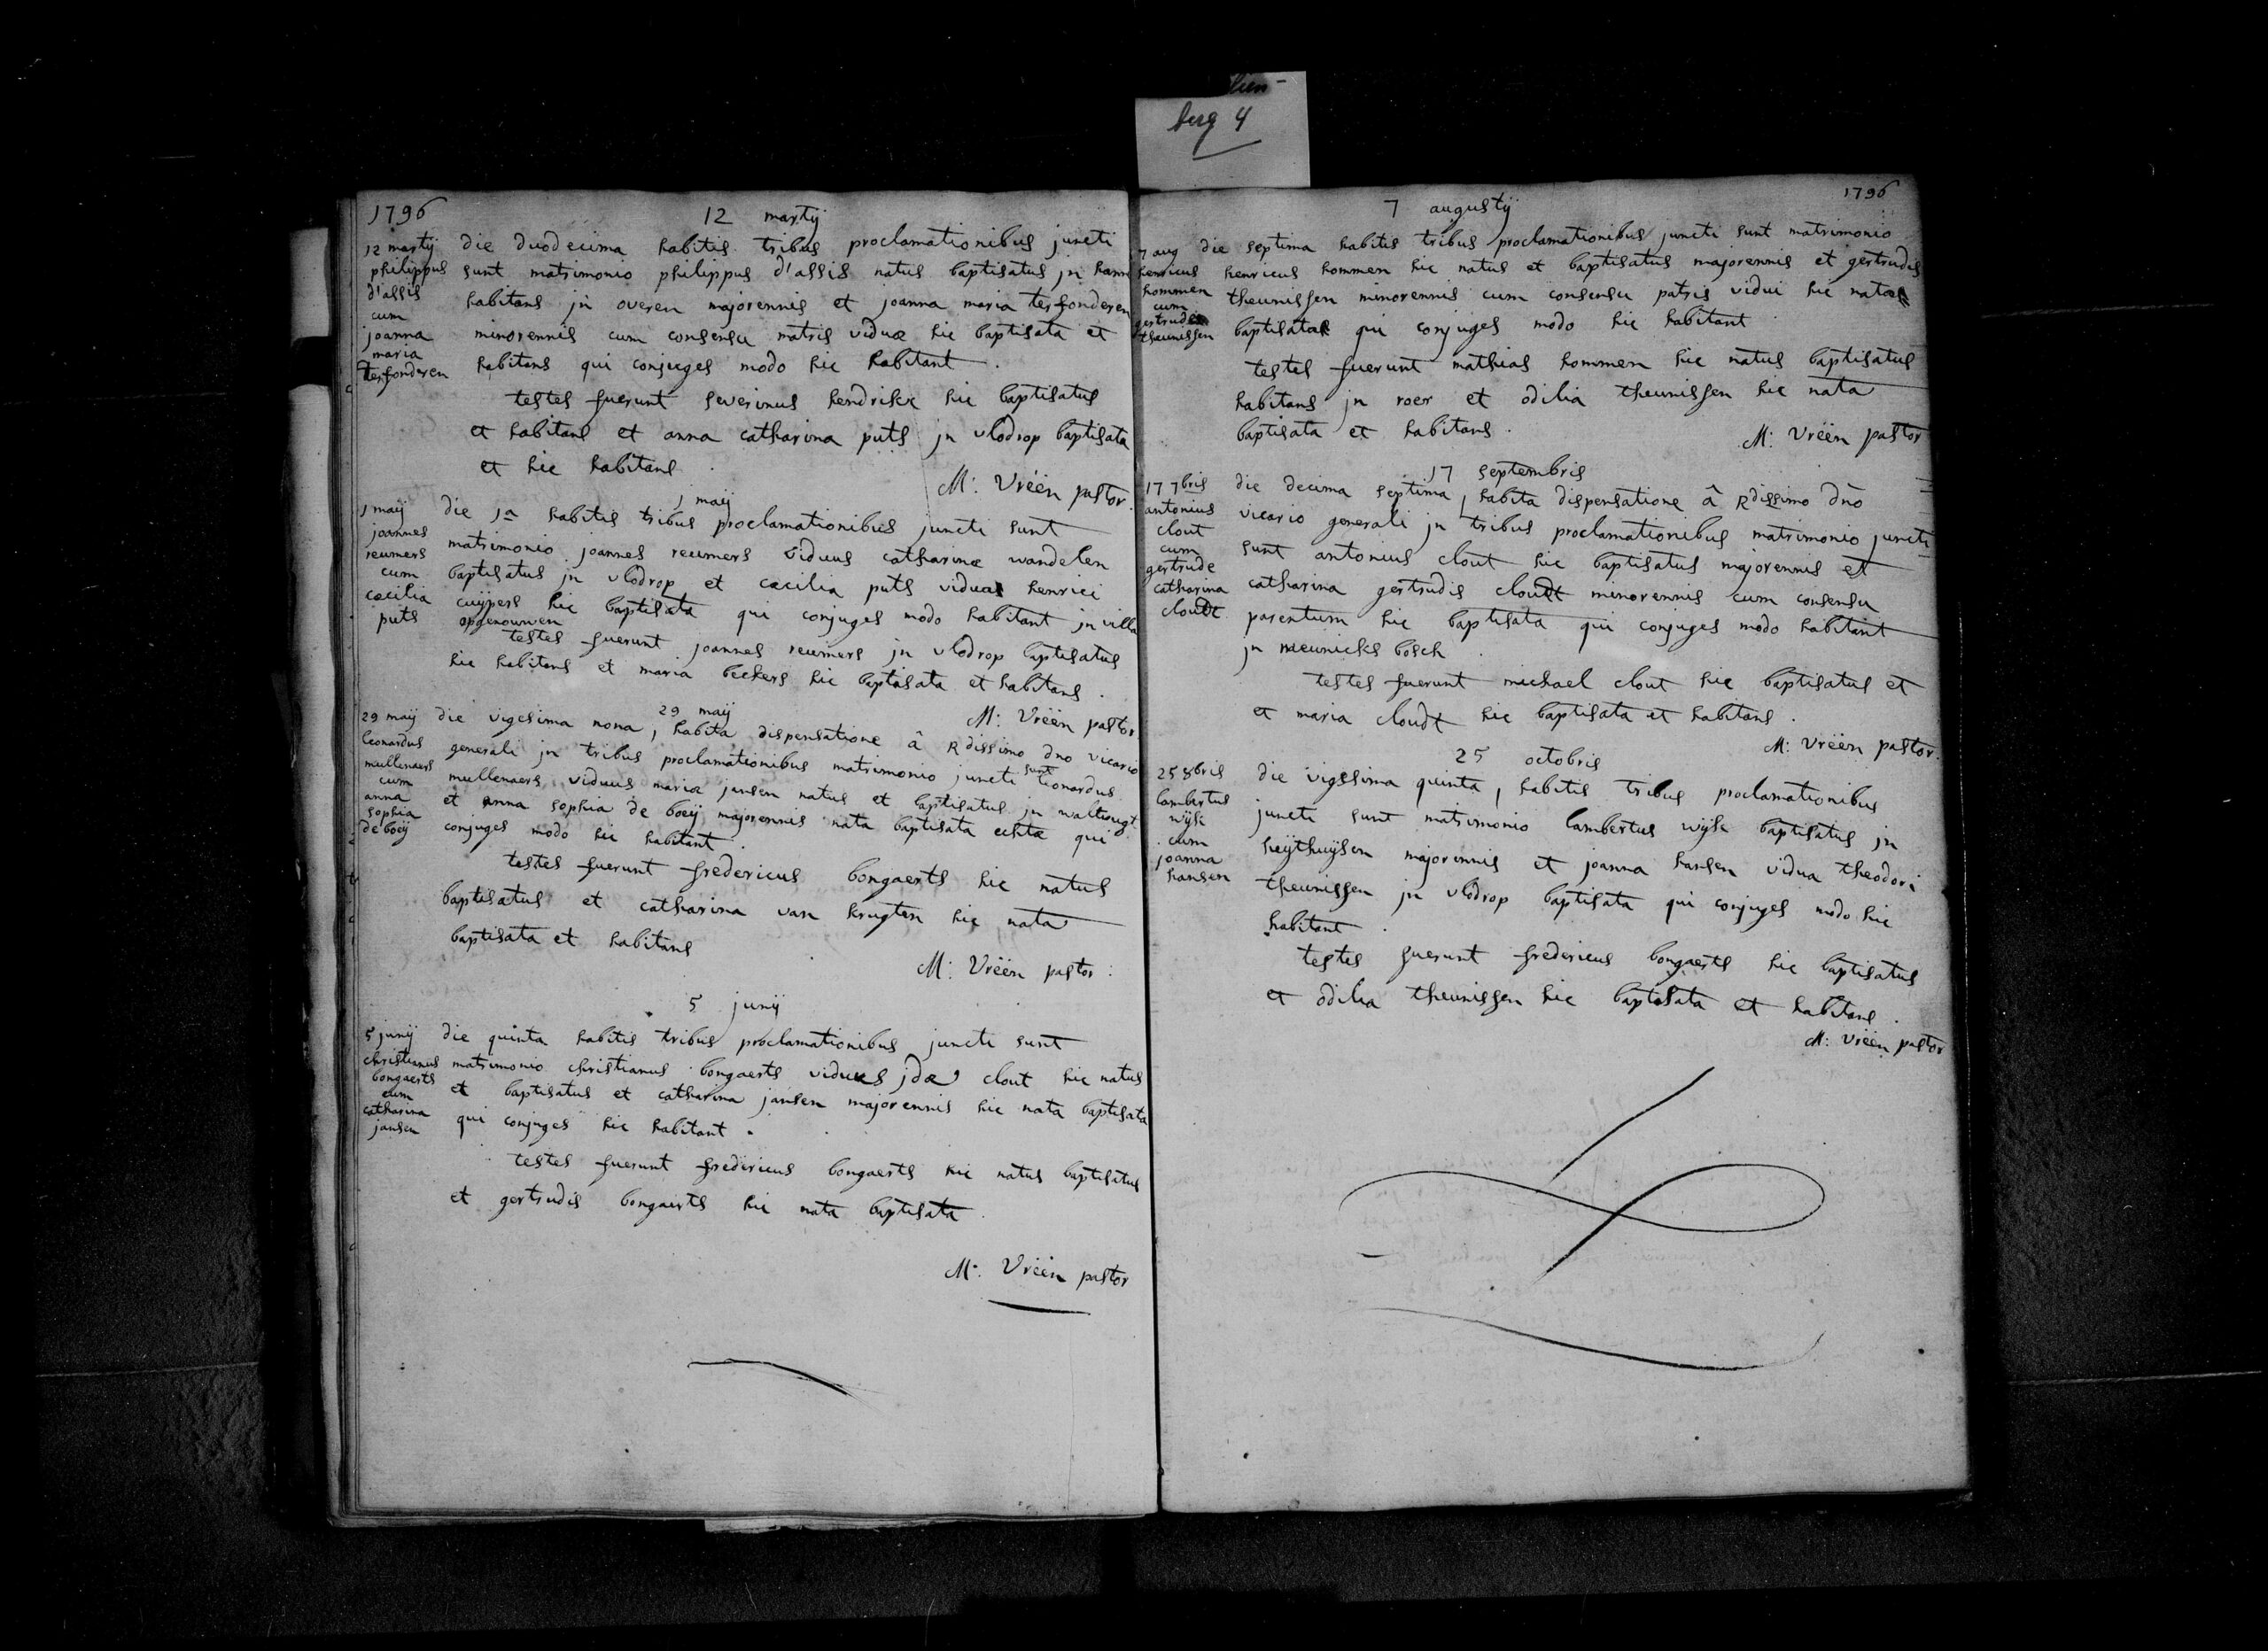 berg 4
1796
12 martij
12 martij
philippus
d'assis
cum
joanna
maria
terfonderen
die duodecima habitis tribus proclamationibus juncti
sunt matrimonio philippus d'assis natus baptisatus in
habitans in overen majorennis et joanna maria terfonderen
minorennis cum consensu matris viduæ hic baptisata et
habitans qui conjuges modo hic habitant.
testes fuerunt severinus hendrikx hic baptisatus
et habitans et anna catharina puts in vlodrop baptisata
et hic habitans.
M: Vrëën pastor.
1 maij
1 maij
joannes
reumers
cum
cæcilia
puts
die 1a habitis tribus proclamationibus juncti sunt
matrimonio joannes reumers viduus catharinæ wandelen
baptisatus in vlodrop et cæcilia puts vidua henrici
cuijpers hic baptisata qui conjuges modo habitant in villa
opgenouwen
testes fuerunt joannes reumers in vlodrop baptisatus
hic habitans et maria beckers hic baptisata et habitans.
M: Vrëën pastor
29 maij
29 maij
leonardus
mullenaers
cum
anna
sophia
de boeij
die vigesima nona, habita dispensatione â Rdissimo dno vicario
generali in tribus proclamationibus matrimonio juncti sunt leonardus
mullenaers viduus mariæ jansen natus et baptisatus in
et anna sophia de boeij majorennis nata baptisata echtæ qui
conjuges modo hic habitant.
testes fuerunt fredericus bongaerts hic natus
baptisatus et catharina van krugten hic nata
baptisata et habitans
M: Vrëën pastor:
5 junij
5 junij
christianus
bongaerts
cum
catharina
jansen
die quinta habitis tribus proclamationibus juncti sunt
matrimonio christianus bongaerts viduus idæ clout hic natus
et baptisatus et catharina jansen majorennis hic nata baptisata
qui conjuges hic habitant.
testes fuerunt fredericus bongaerts hic natus baptisatus
et gertrudis bongaerts hic nata baptisata.
M: Vrëën pastor
1796
7 augustij
7 aug
henricus
hommen
cum
gertrude
theunissen
die septima habitis tribus proclamationibus juncti sunt matrimonio
henricus hommen hic natus et baptisatus majorennis et gertrudis
theunissen minorennis cum consensu patris vidui hic nata
baptisata qui conjuges modo hic habitant.
testes fuerunt mathias hommen hic natus baptisatus
habitans in roer et odilia theunissen hic nata
baptisata et habitans.
M: Vrëën pastor
17 septembris
17 7bris
antonius
clout
cum
gertrude
catharina
cloudt
die decima septima, habita dispensatione â Rdissimo dno
vicario generali in tribus proclamationibus matrimonio juncti
sunt antonius clout hic baptisatus majorennis et
catharina gertrudis cloudt minorennis cum consensu
parentum hic baptisata qui conjuges modo habitant
in meunicks bosch.
testes fuerunt michael clout hic baptisatus et
et maria cloudt hic baptisata et habitans.
M: Vrëën pastor.
25 octobris
25 8bris
lambertus
wijse
cum
joanna
hansen
die vigesima quinta, habitis tribus proclamationibus
juncti sunt matrimonio lambertus wijse baptisatus in
heijthuijsen majorennis et joanna hansen vidua theodori
theunissen in vlodrop baptisata qui conjuges modo hic
habitant.
testes fuerunt fredericus bongaerts hic baptisatus
et odilia theunissen hic baptisata et habitans.
M: Vrëën pastor